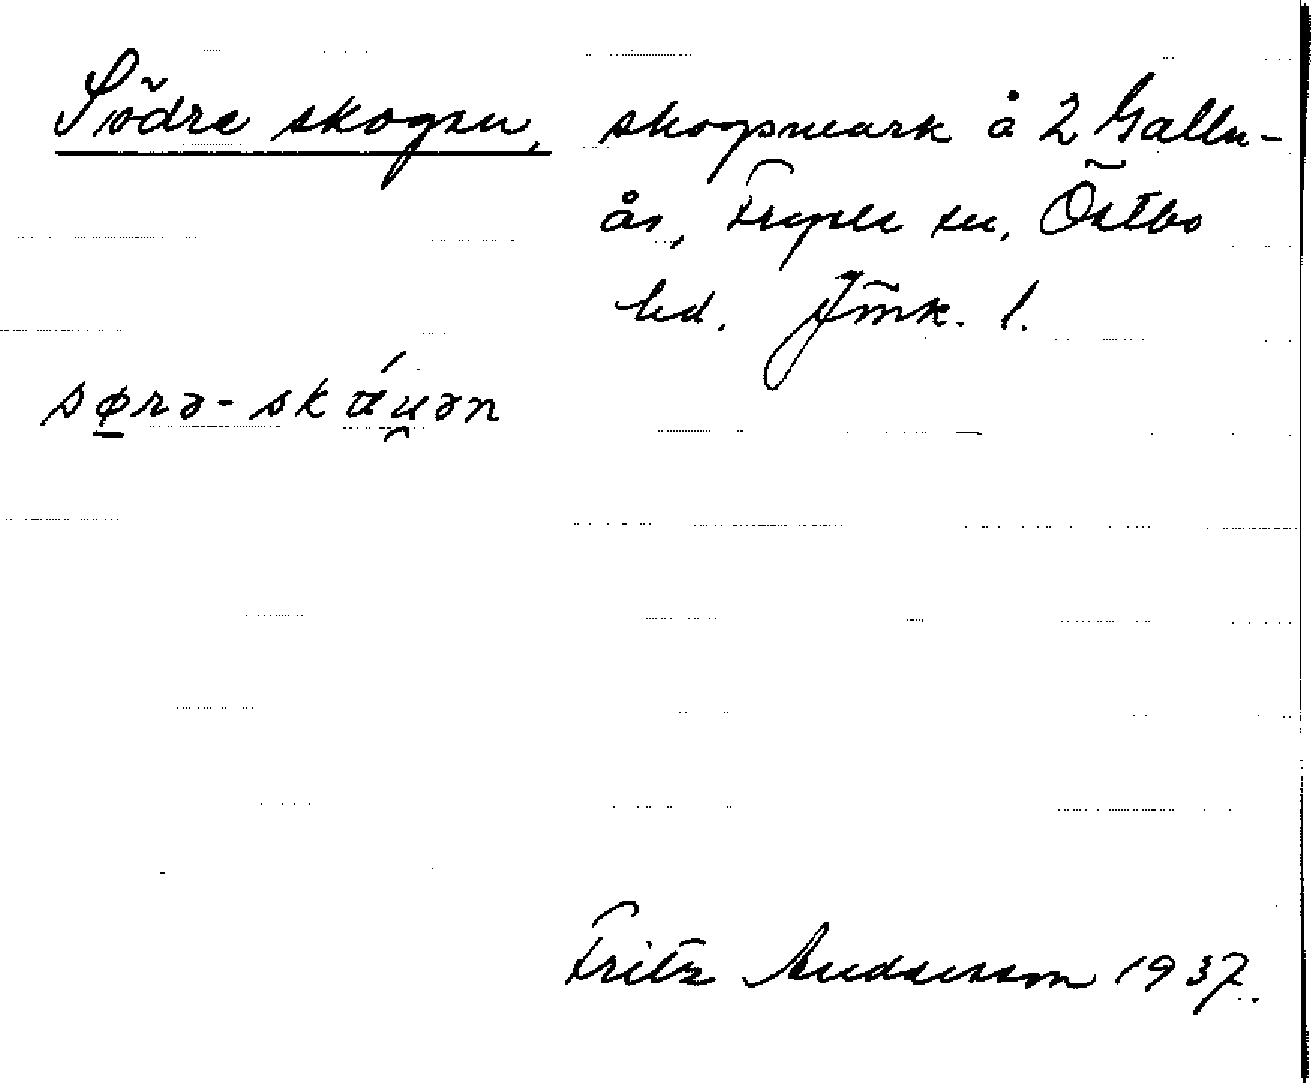 Södra skogen, skogsmark å 2 Galln-
ås, Fryele sn, Östbo
hd. Jmk. l.
sørə-skáuən
Fritz Andersson 1937.